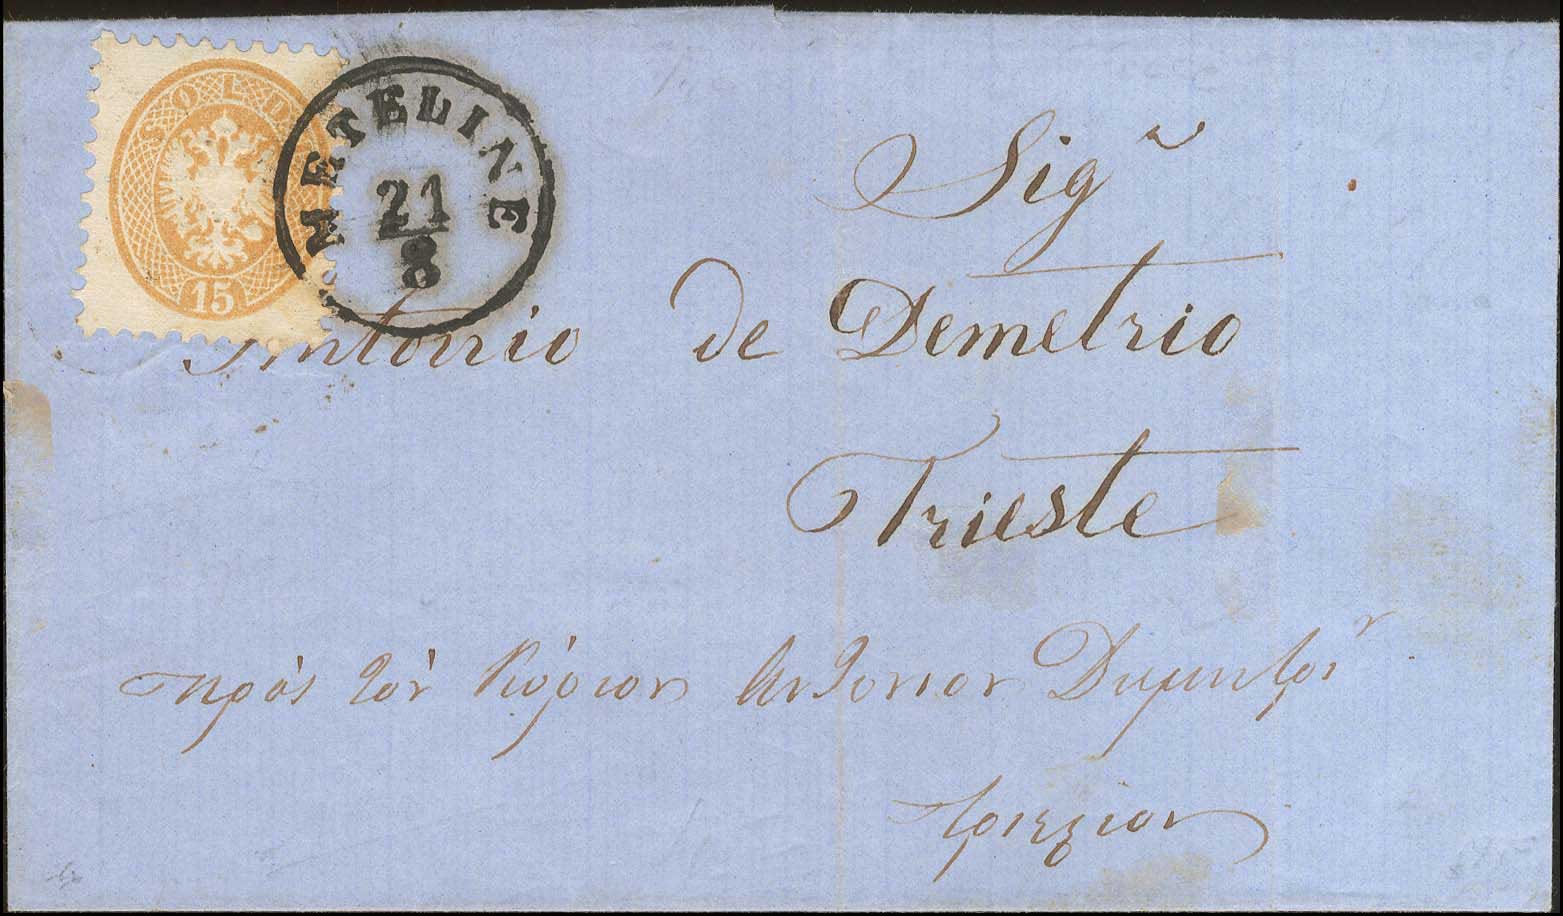 SOLDI
15
METELINE
21
8
Sigr
Antonio de Demetrio
Trieste
πρὸς τὸν Κύριον Αντονιον Δημητρι